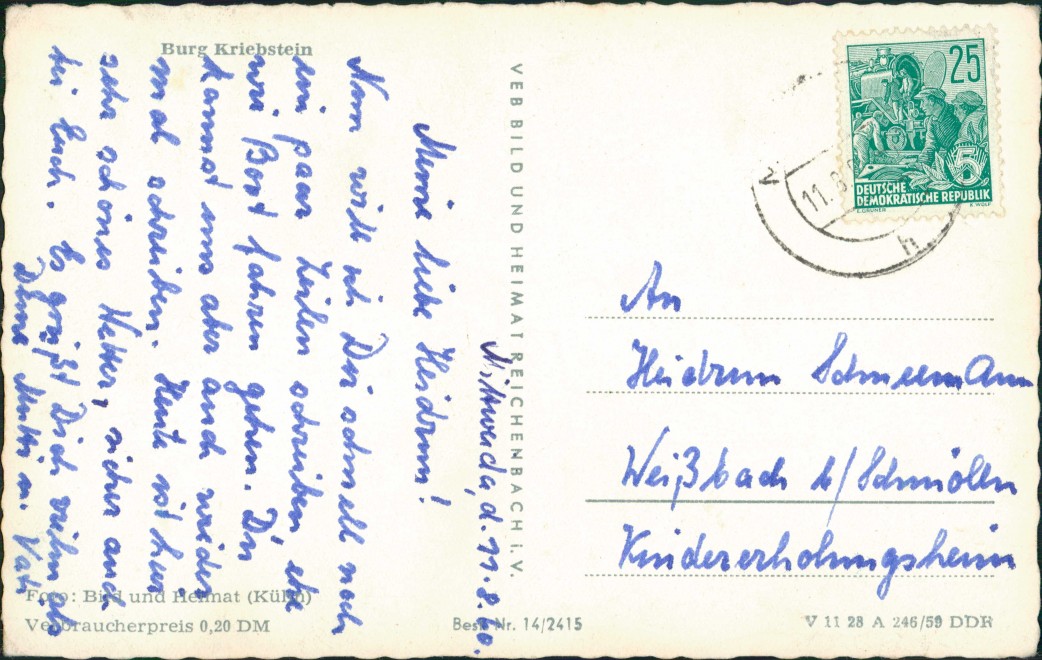 Burg Kriebstein
Mittweida, d. 11.8.60.
Meine liebe Heidrun!
Nun will ich Dir schnell noch
ein paar Zeilen schreiben, ehe
wir Boot fahren gehen. Du
kannst uns aber auch wieder
mal schreiben. Heute ist hier
sehr schönes Wetter, sicher auch
bei Euch. Es grüßt Dich vielmals
Deine Mutti u. Vati
Foto: Bild und Heimat (Kühn)
Verbraucherpreis 0,20 DM
VEB BILD UND HEIMAT REICHENBACH i. V.
Best. Nr. 14/2415
25
5
DEUTSCHE
DEMOKRATISCHE REPUBLIK
E. GRUNER K. WOLF
11.8.
An
Heidrun Schneemann
Weißbach b/Schmölln
Kindererholungsheim
V 11 28 A 246/59 DDR